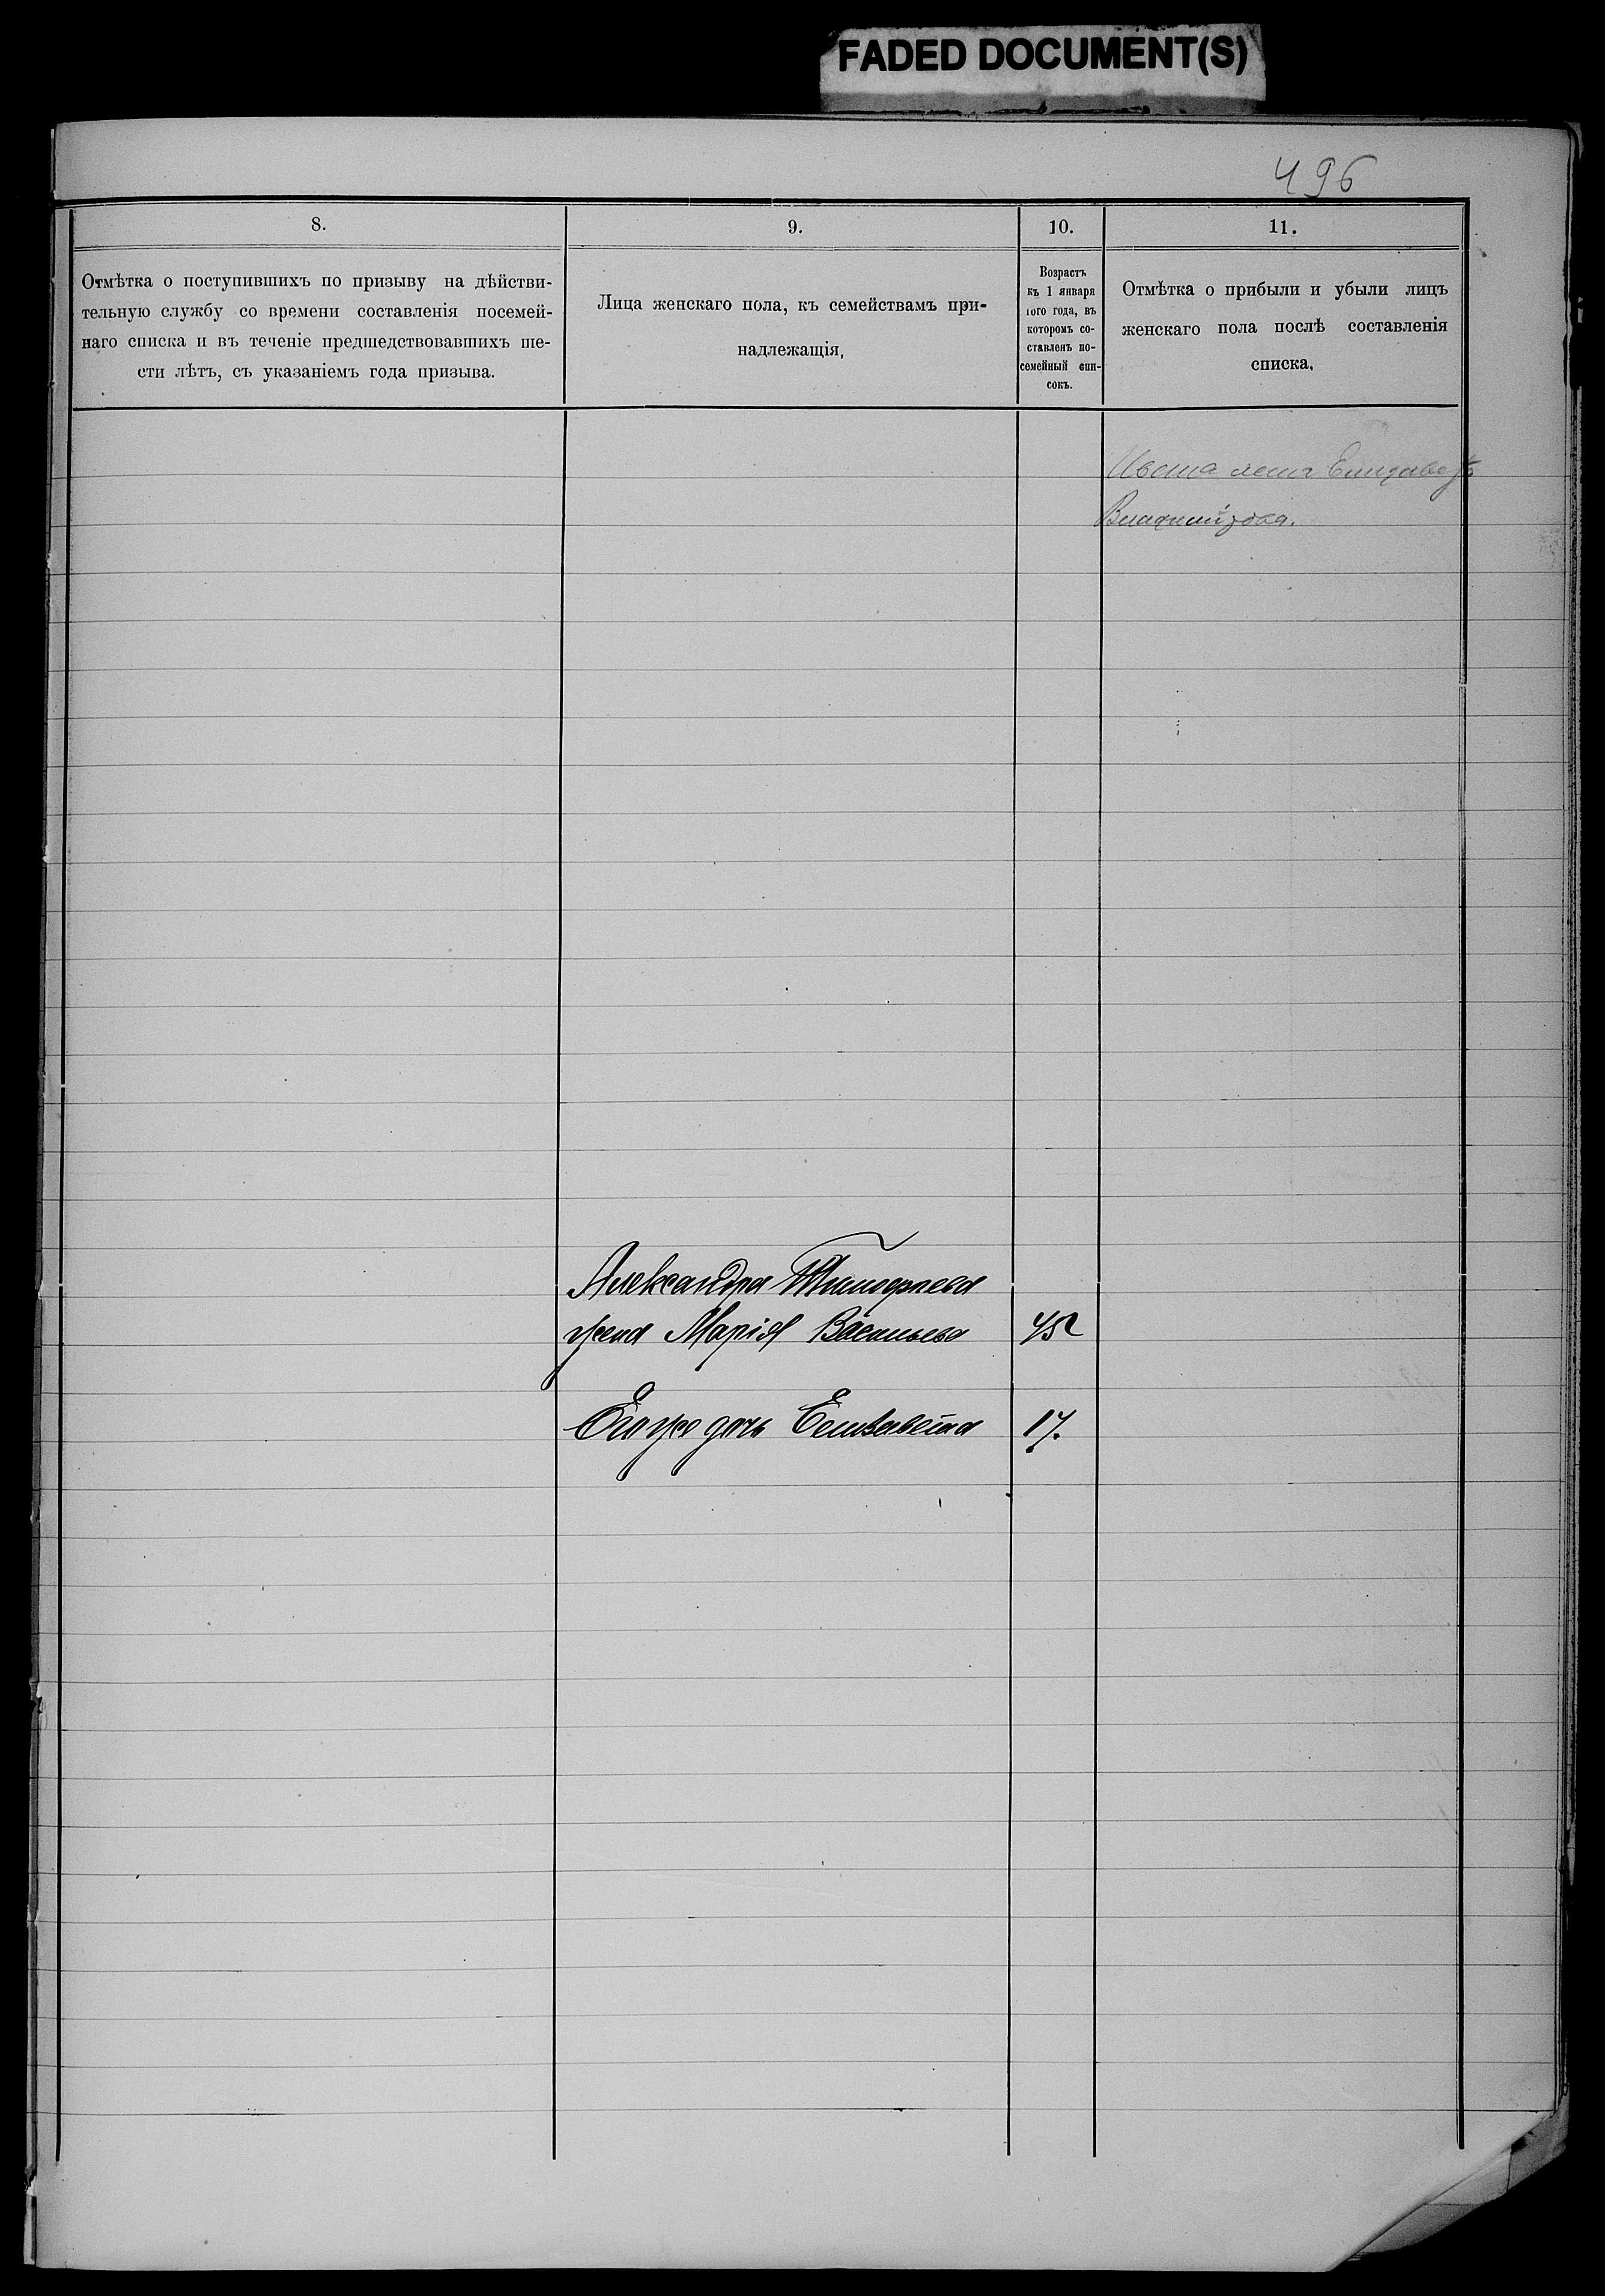 FADED DOCUMENT(S)
496
8.
9.
10.
11.
Отмѣтка о поступившихъ по призыву на дѣйстви-
тельную службу со времени составленія посемей-
наго списка и въ теченіе предшедствовавшихъ ше-
сти лѣтъ, съ указаніемъ года призыва.
Лица женскаго пола, къ семействамъ при-
надлежащія,
Возрастъ
къ 1 января
того года, въ
которомъ со-
ставленъ по-
семейный спи-
сокъ.
Отмѣтка о прибыли и убыли лицъ
женскаго пола послѣ составленія
списка.
Александра Тимофеева
жена Марія Васильева 45
Его же дочь Елизавета 17.